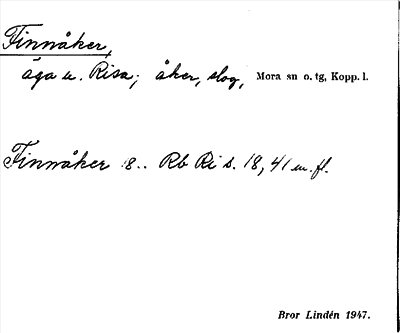 Finnåker,
äga u. Risa; åker, slog, Mora sn o. tg, Kopp. l.
Finnåker :8.. Rb Ri s. 18, 41 m. fl.
Bror Lindén 1947.